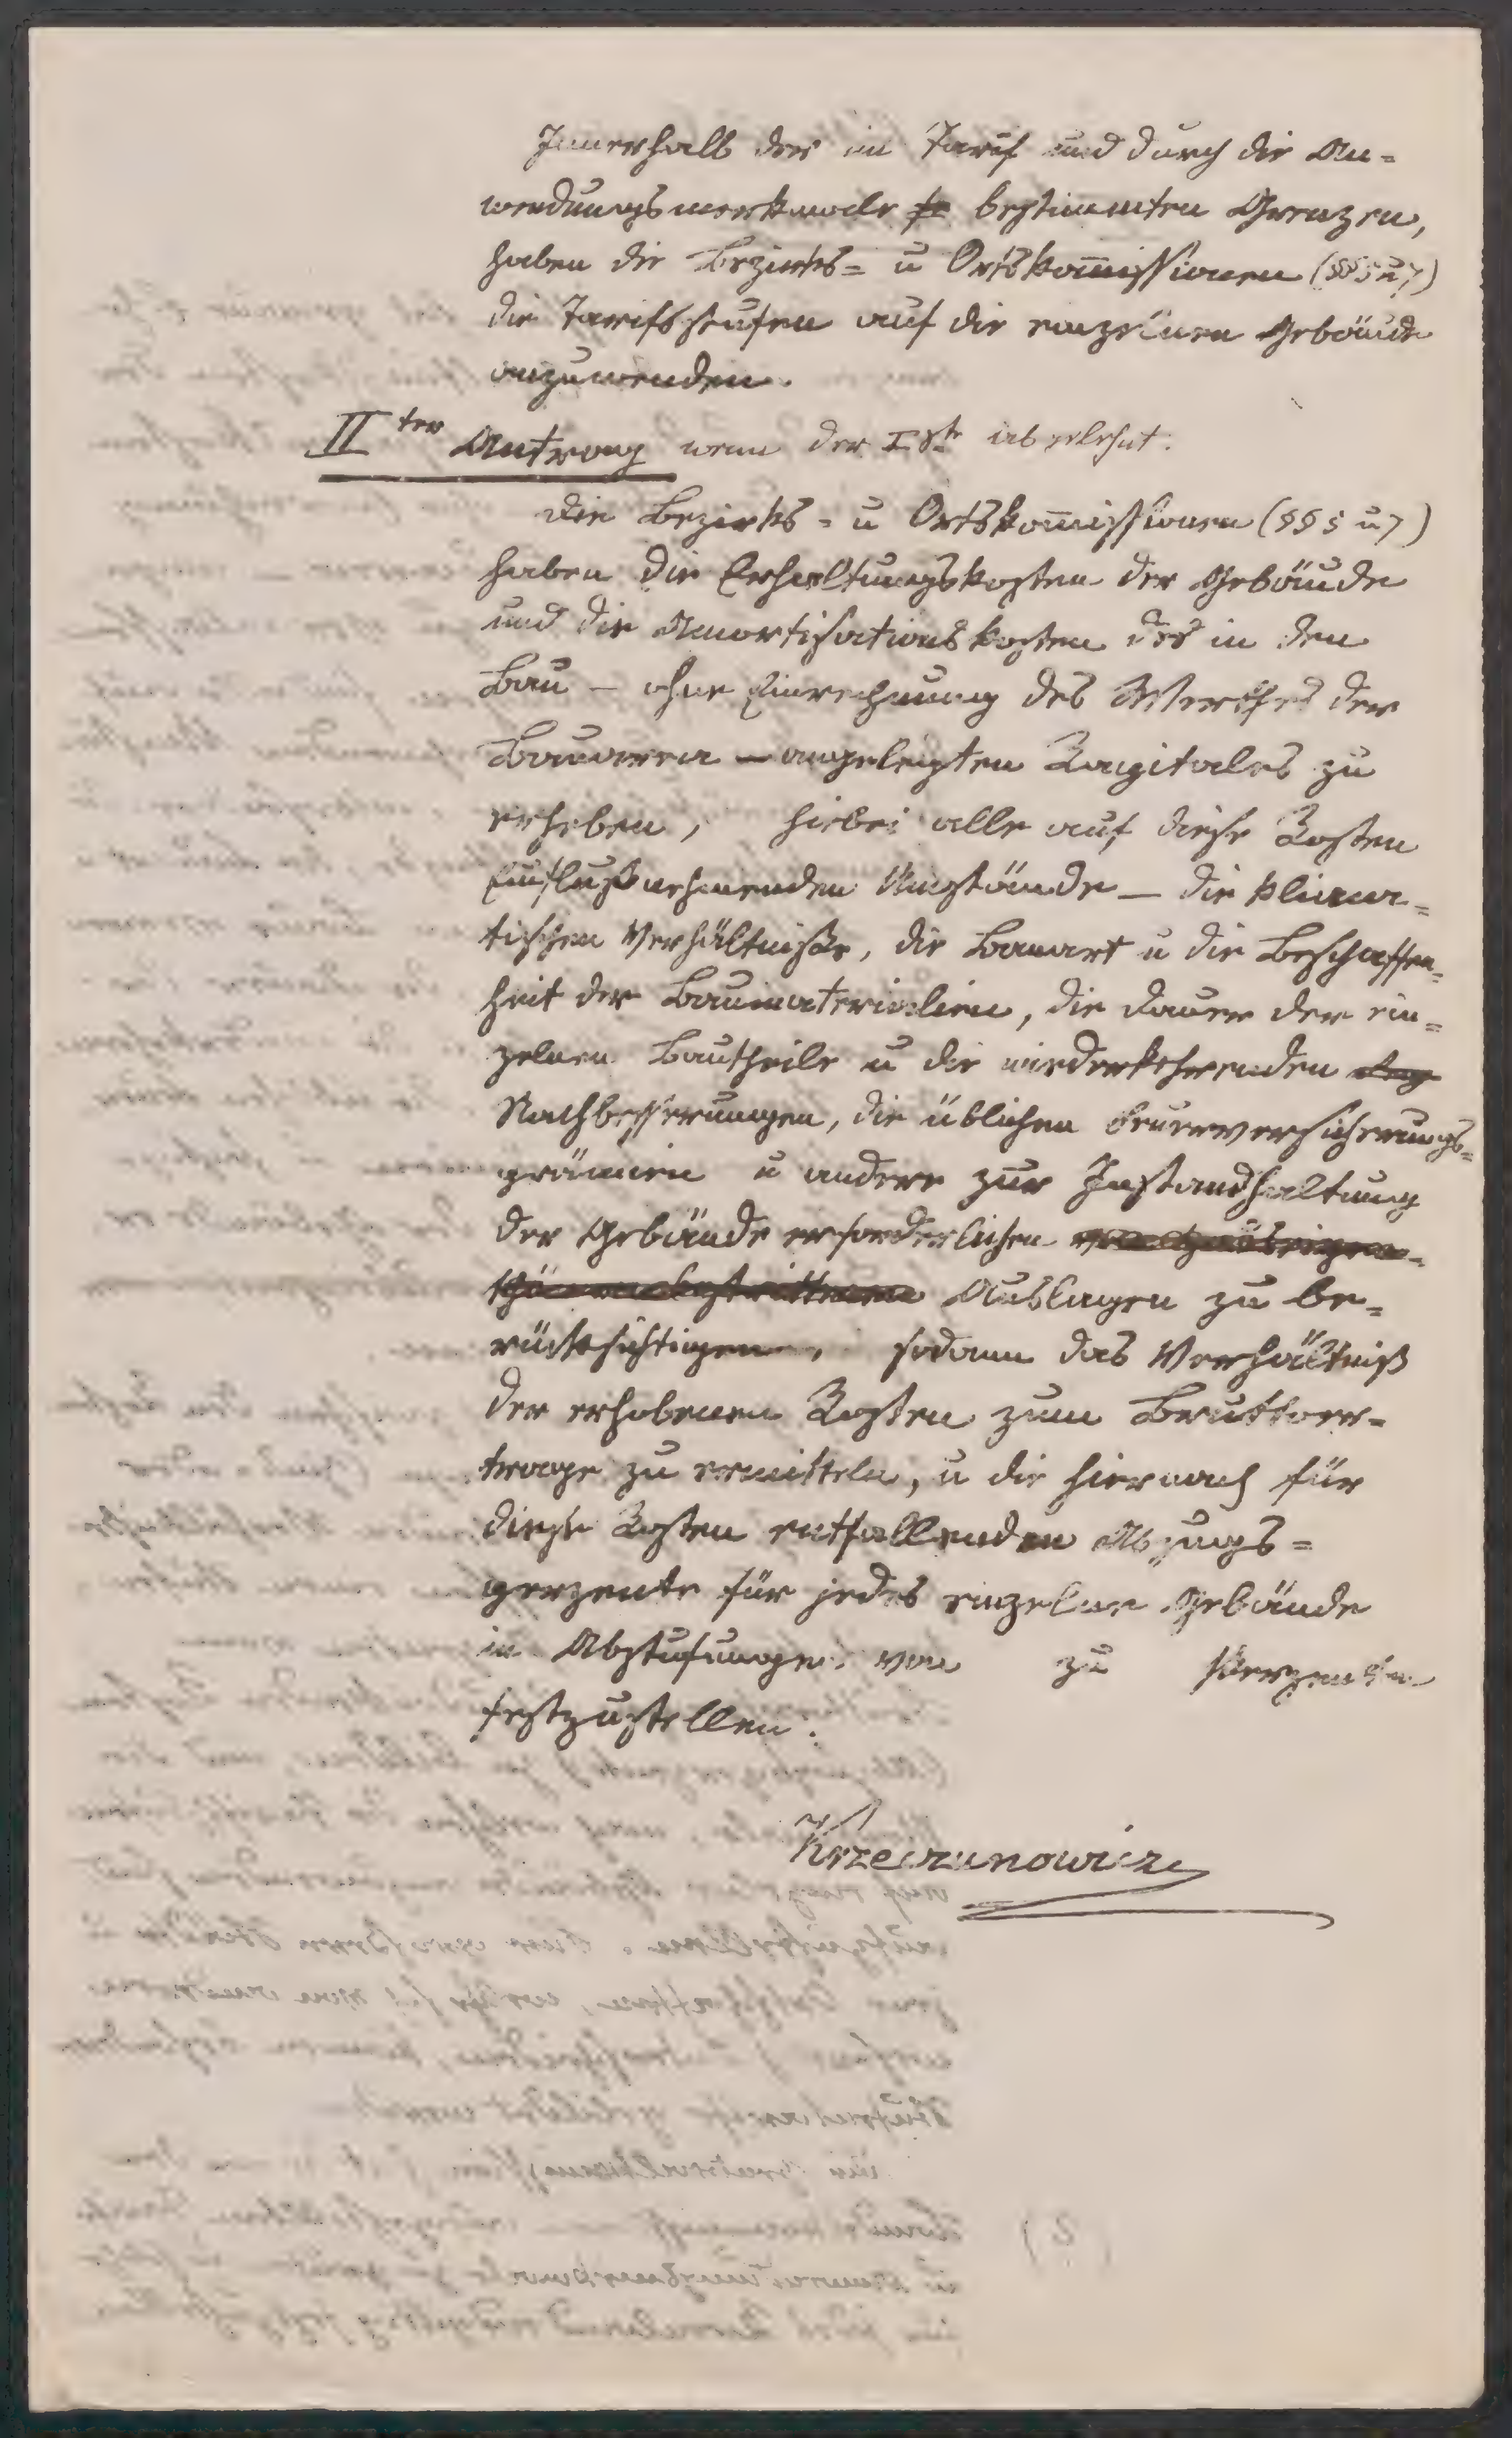 Innerhalb der im Tarif und durch die An-
wendungsmerkmale bestimmten Grenzen,
haben die Bezirks- u Ortskom̅issionen (§§ 5 u 7)
die Tarifsstufen auf die einzelnen Gebäude
anzuwenden.
IIter Antrag wenn der Iste abgelehnt.
Die Bezirks- u Ortskom̅issionen (§§ 5 u 7)
haben die Erhaltungskosten der Gebäude
und die Amortisationskosten des in den
Bau – ohne Einrechnung des Werthes der
Bauarea – angelegten Kapitales zu
erheben, hiebei alle auf diese Kosten
Einflußnehmenden Umstände – die klima-
tischen Verhältniße, die Bauart u die Beschaffen-
heit der Baumaterialien, die Dauer der ein-
zelnen Bautheile u die wiederkehrenden
Nachbesserungen, die üblichen Feuerversicherungs-
prämien u andere zur Instandhaltung
der Gebäude erforderlichen
Auslagen zu be-
rücksichtigen, sodann das Verhältniß
der erhobenen Kosten zum Bruttoer-
trage zu ermitteln, u die hiernach für
diese Kosten entfallenden Abzugs-
perzente für jedes einzelne Gebäude
in Abstufungen von zu Perzenten
festzustellen.
Krzeczunowicz